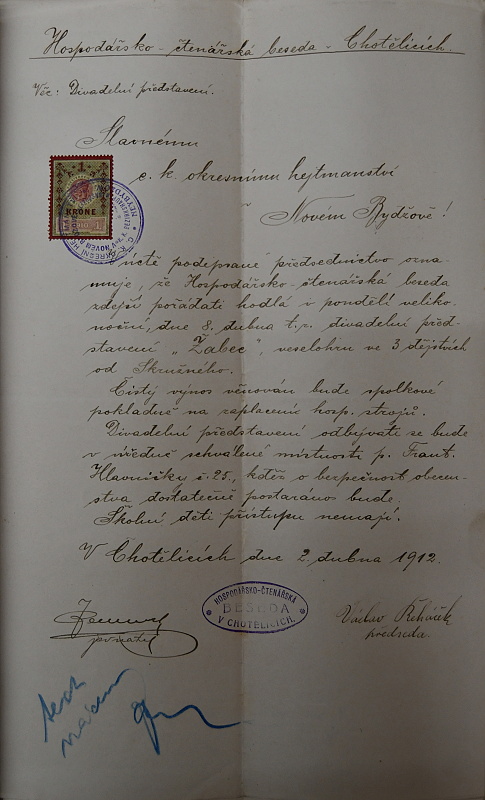 Hospodářsko-čtenářská beseda - Chotělicích.
Věc: Divadelní představení.
Slavnému
c. k. okresnímu hejtmanství
v
Novém Bydžově!
1
KRONE
V úctě podepsané předsednictvo ozna-
muje, že Hospodářsko-čtenářská beseda
zdejší pořádati hodlá v pondělí veliko-
noční, dne 8. dubna t. r. divadelní před-
stavení „Žabec", veselohru ve 3 dějstvích
od Skružného.
Čistý výnos věnován bude spolkové
pokladně na zaplacení hosp. strojů.
Divadelní představení odbývati se bude
v úředně schválené místnosti p. Frant.
Hlavničky č. 25., kdež o bezpečnost obecen-
stva dostatečně postaráno bude.
Školní děti přístupu nemají.
V Chotělicích dne 2. dubna 1912.
HOSPODÁŘSKO-ČTENÁŘSKÁ
BESEDA
V CHOTĚLICÍCH.
jednatel
Václav Řeháček
předseda.